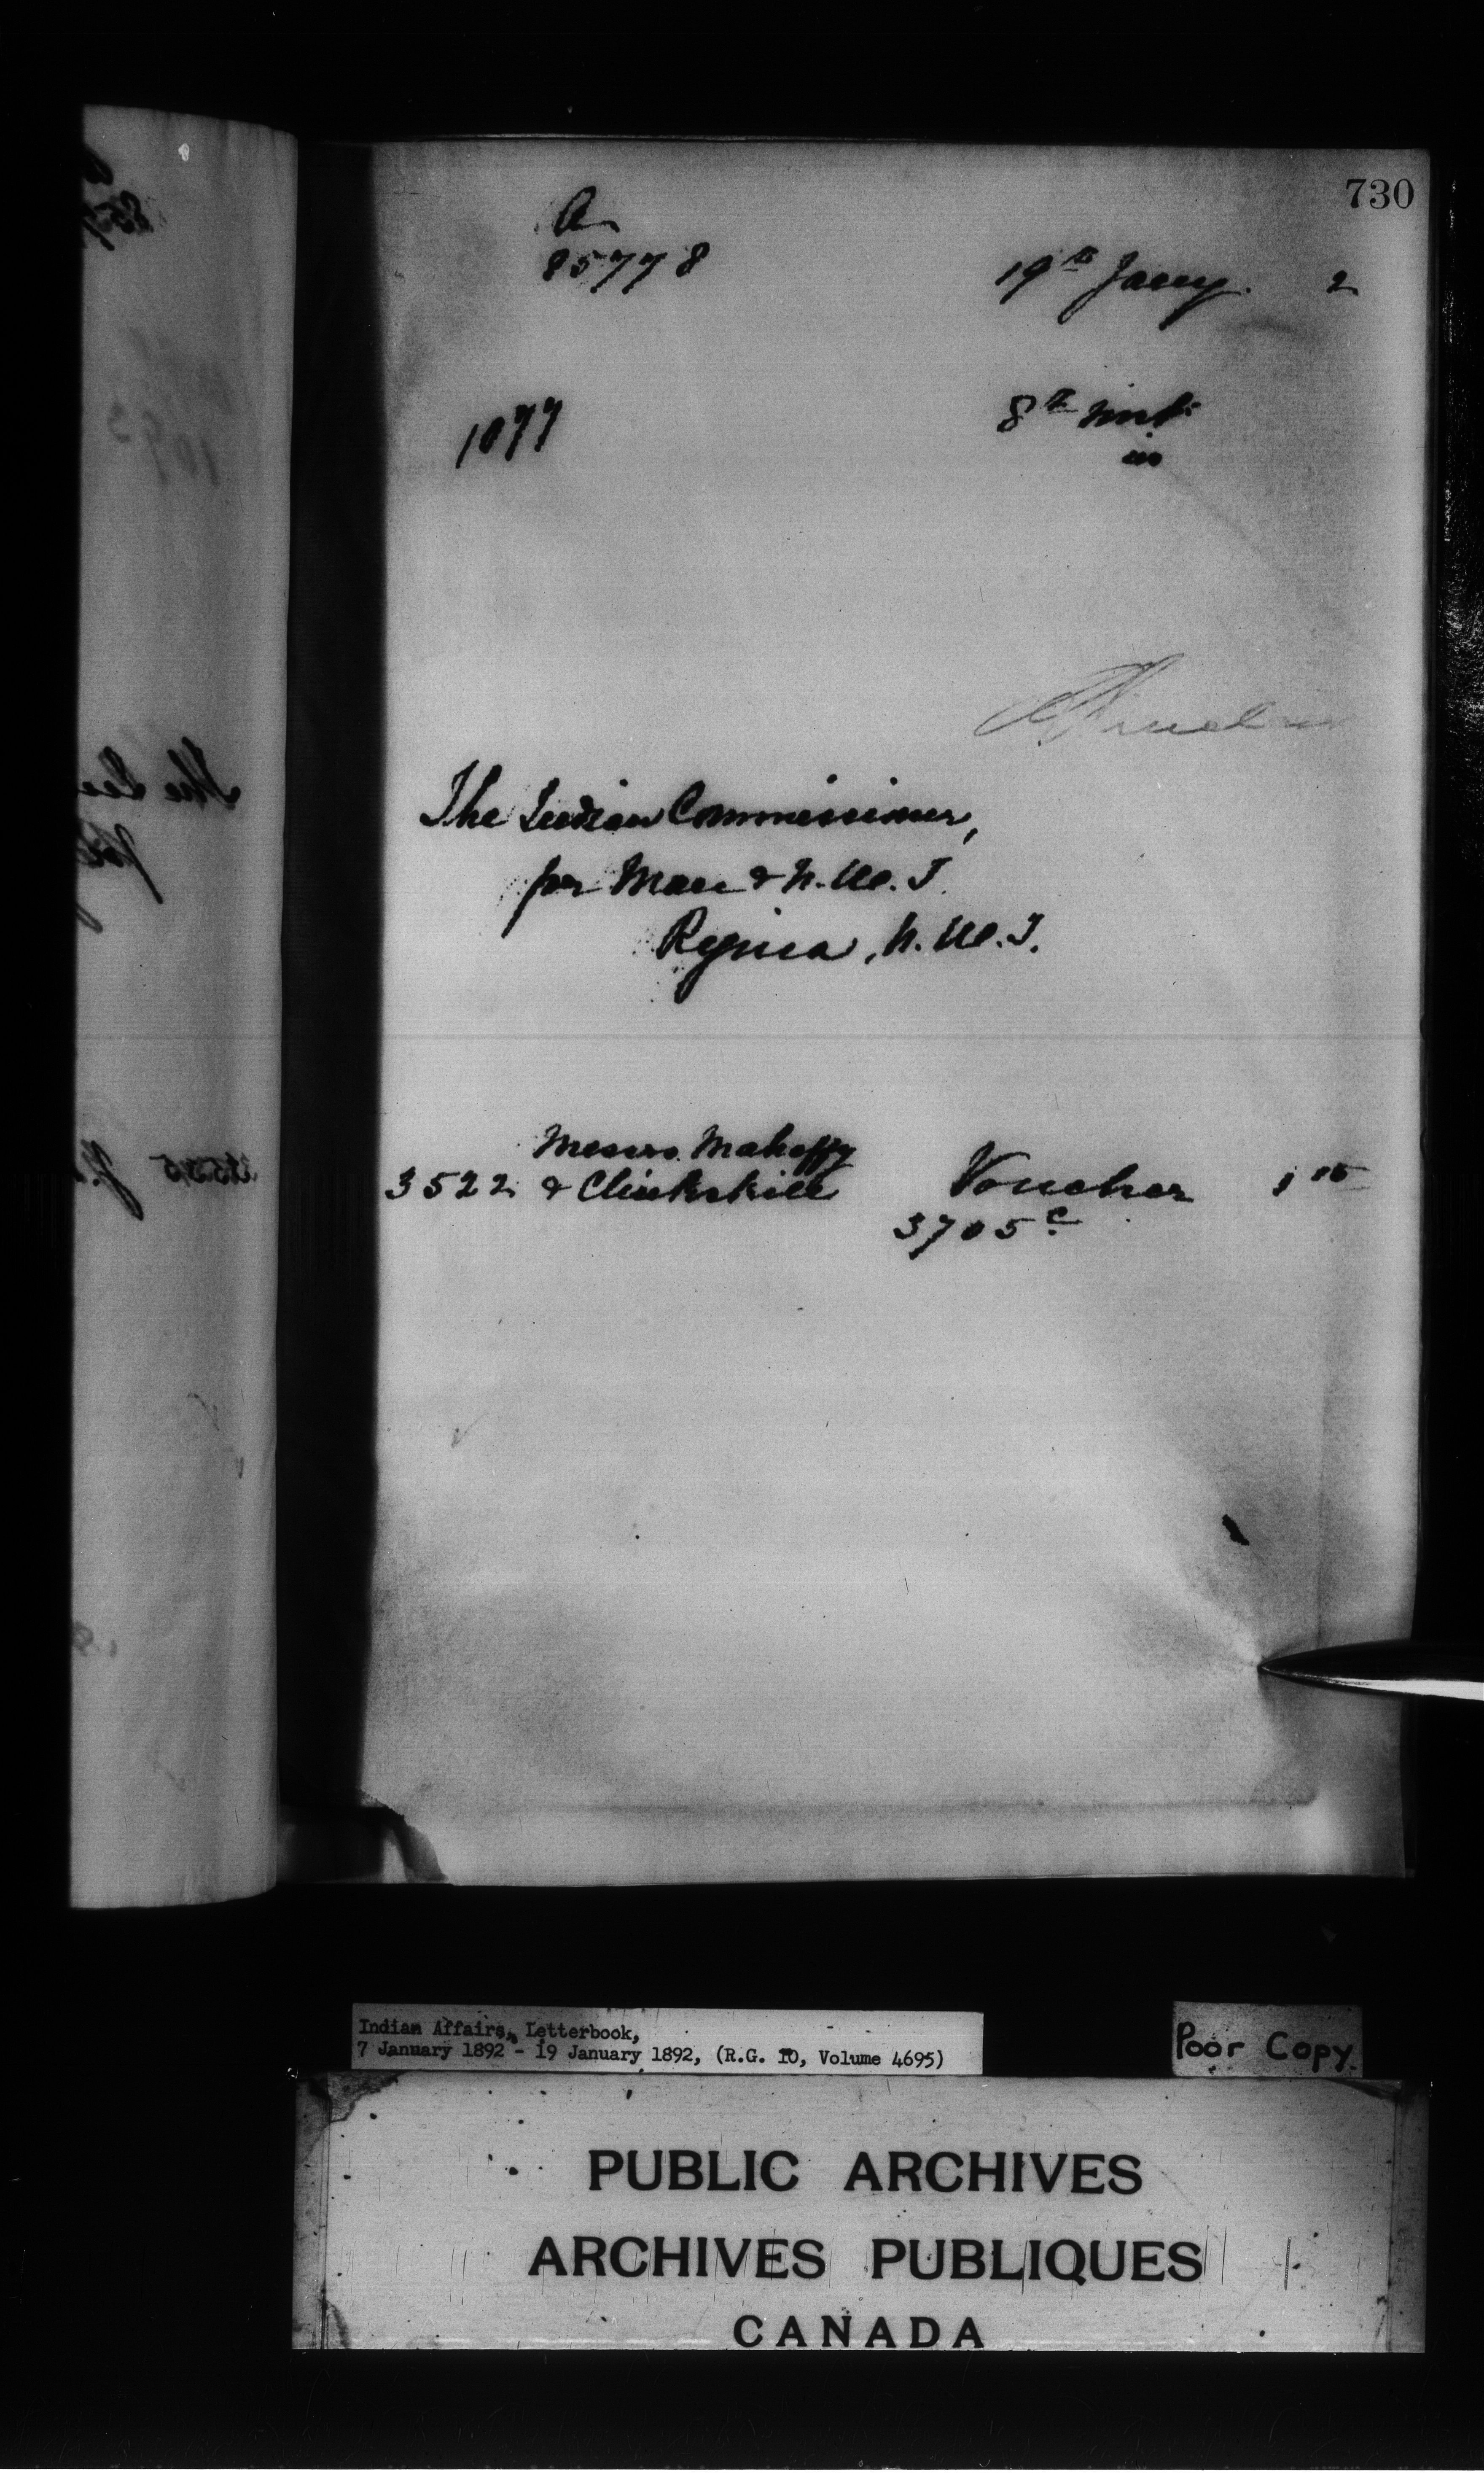 730
A
85778
19th Jany. 2
1077
8th inst.
The Indian Commissioner,
for Man & N.W.T.
Regina, N.W.T.
Messrs. Mahaffy
3522 & Clinkskill Voucher 1 15
3705 c.
Indian Affairs, Letterbook,
7 January 1892 - 19 January 1892, (R.G. 10, Volume 4695)
Poor Copy.
PUBLIC ARCHIVES
ARCHIVES PUBLIQUES
CANADA